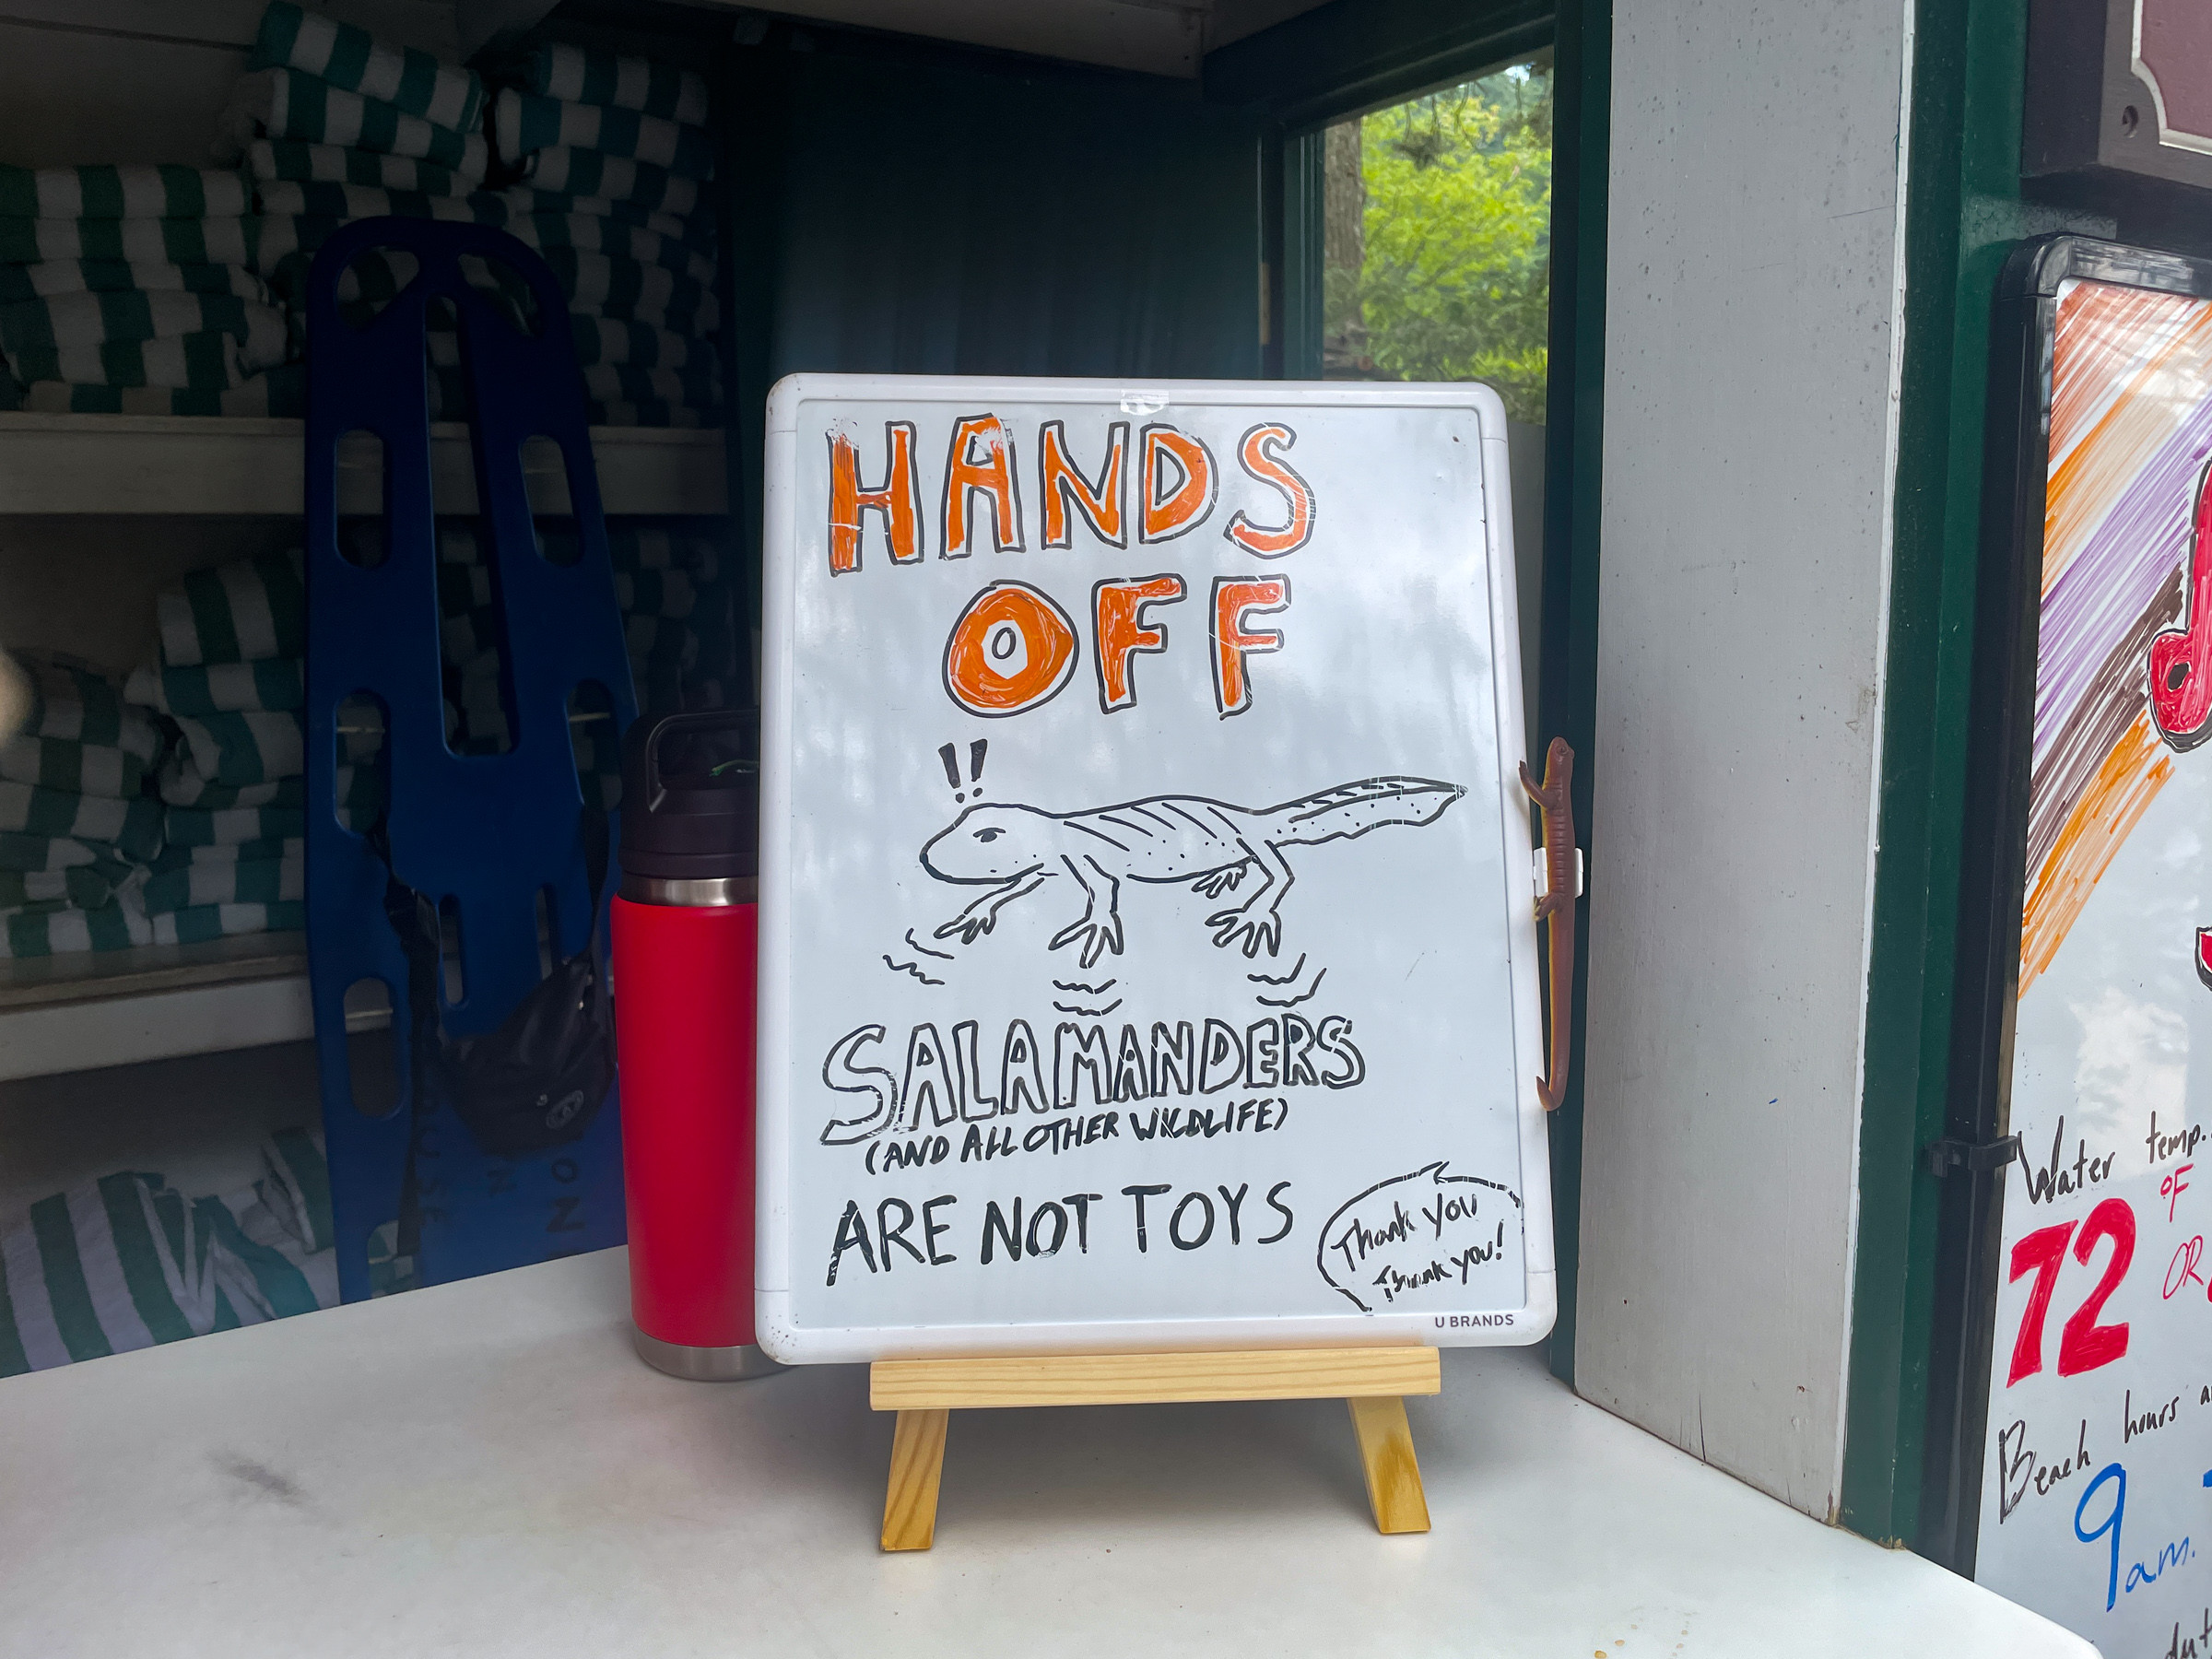 HANDS
OFF
!!
SALAMANDERS
(AND ALL OTHER WILDLIFE)
ARE NOT TOYS
Thank you
Thank you!
U BRANDS
Water temp.
72 °F
OR
Beach hours
9am.